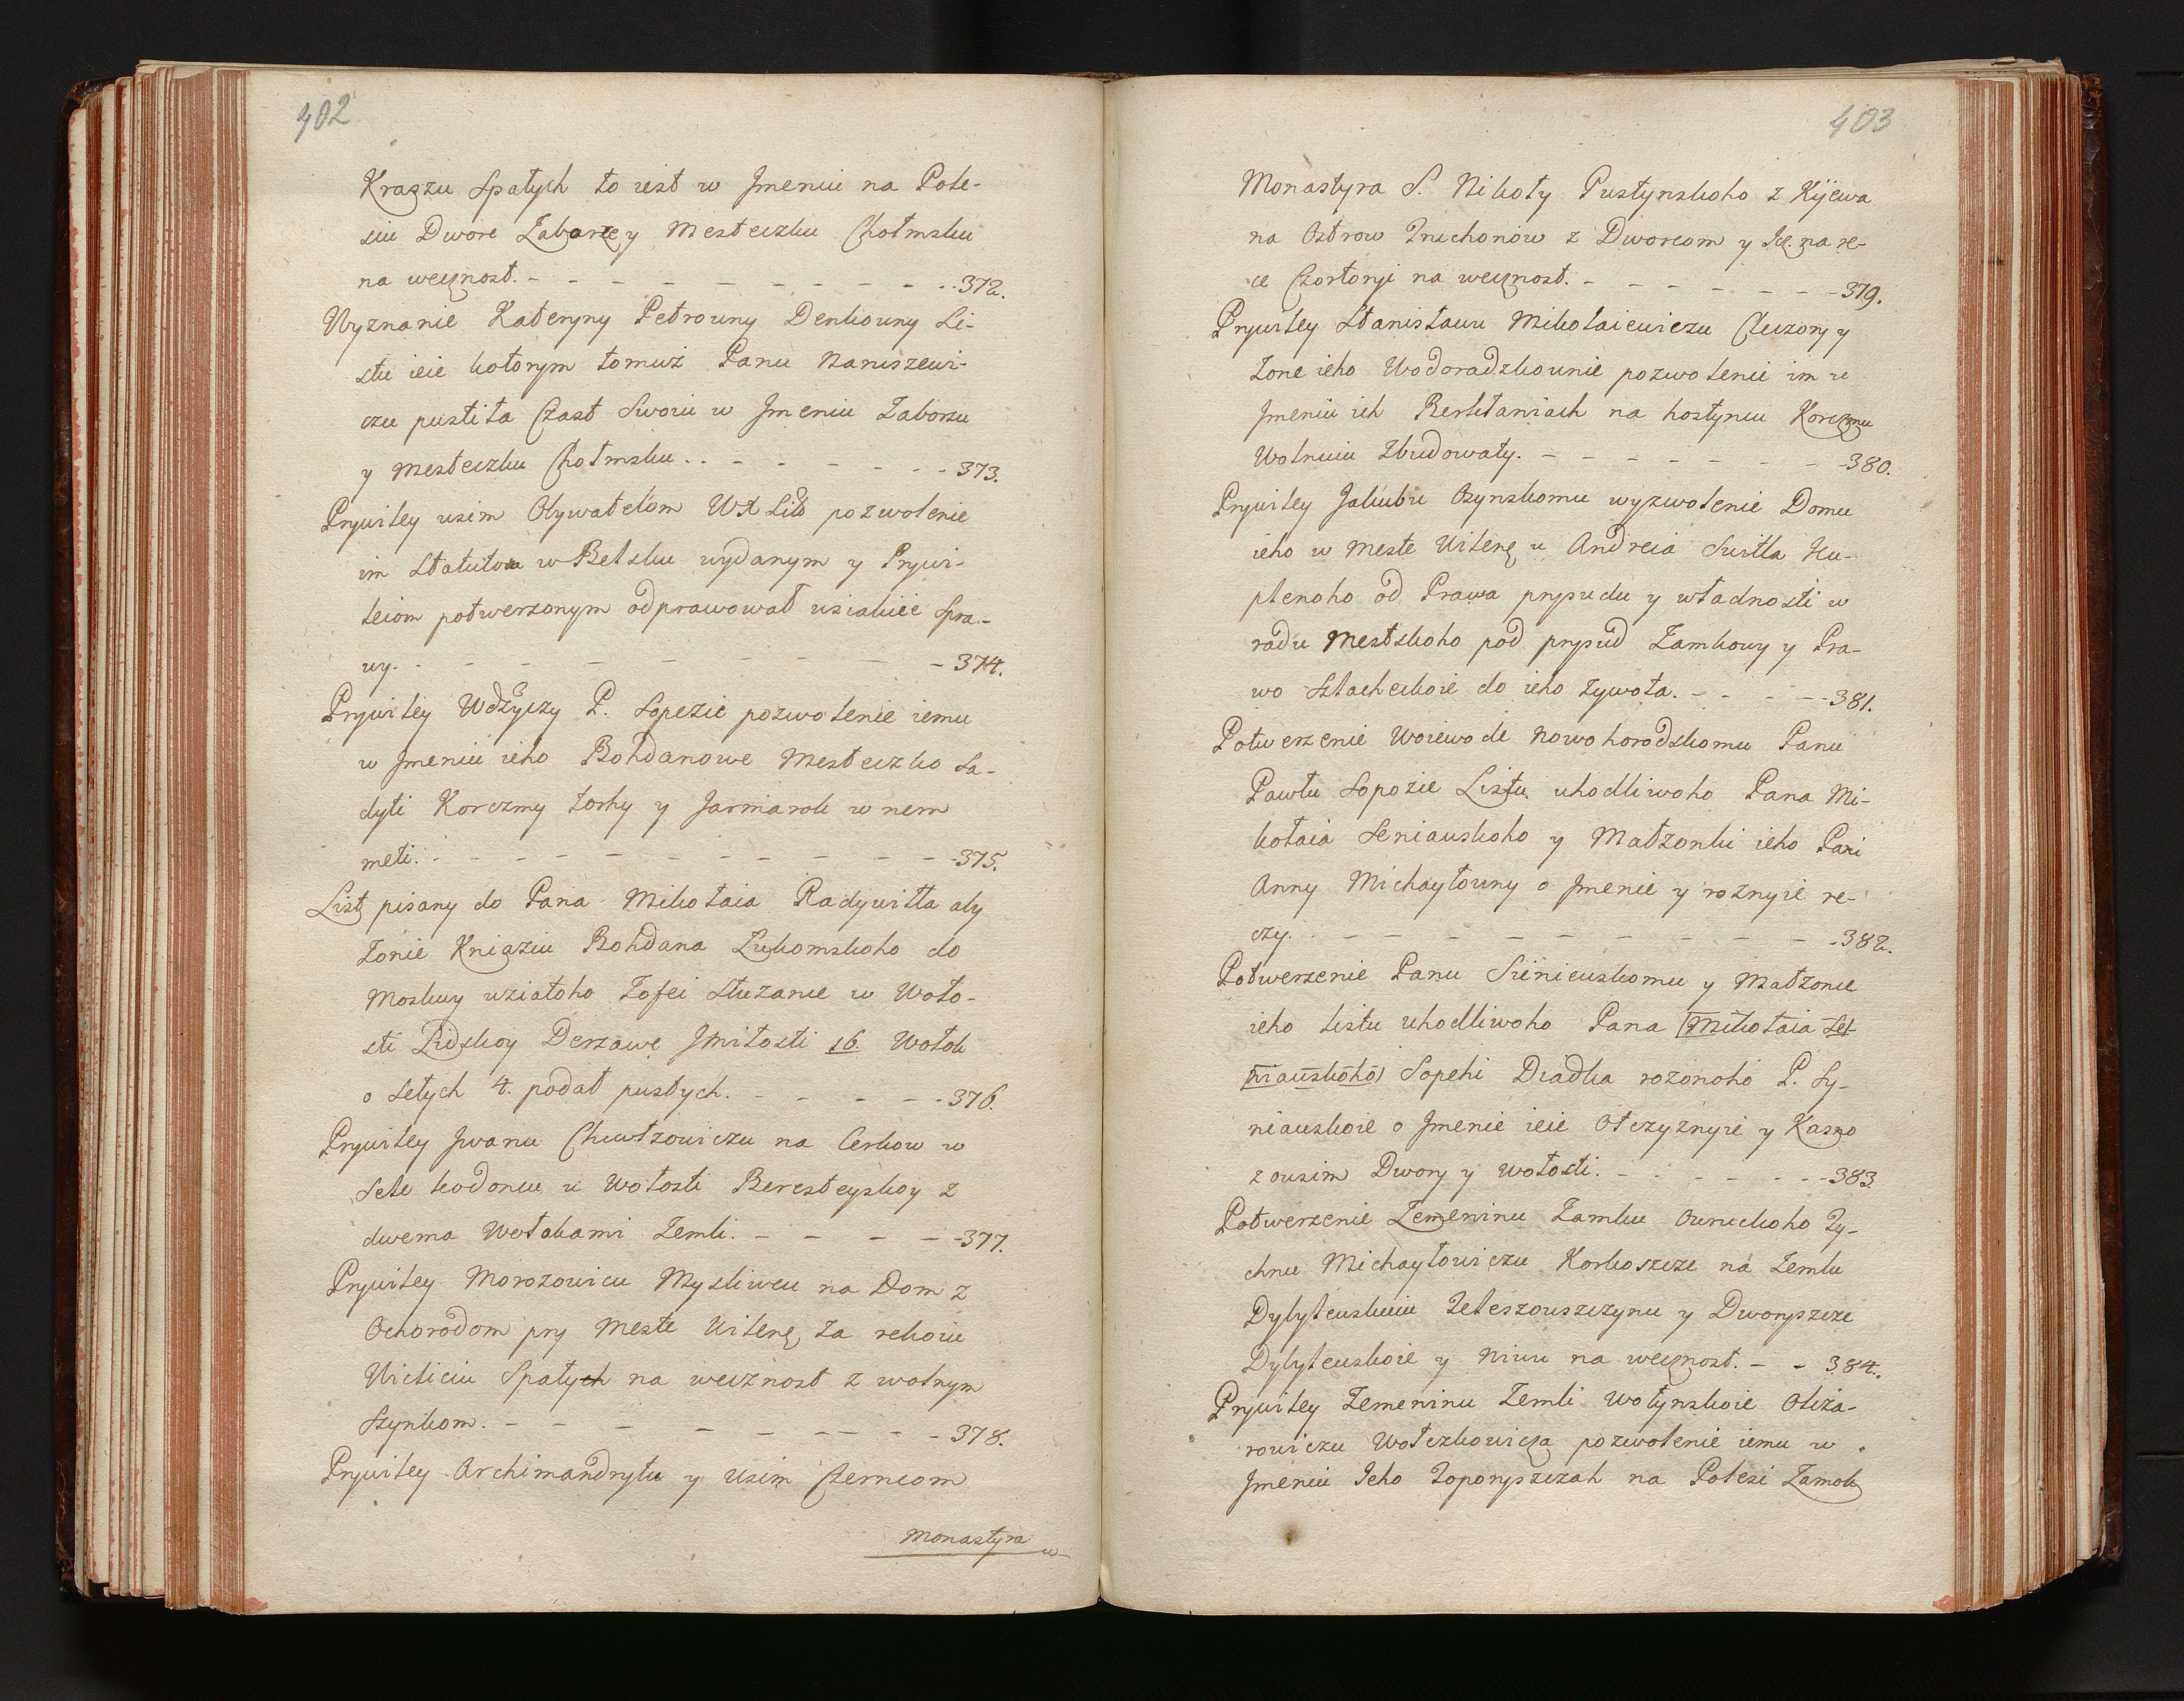 402
Kraszu Spałych to iest w Jmeniu na Pole-
siu Dwore Zaborze y Mesteczku Chołmsku
na wecznost. - - - - - - - - - 372.
Wyznanie Kateryny Petrowny Denkowny Li-
stu ieie kotorym tomuż Panu Naruszewi-
czu pustiła Czast Swoiu w Jmeniu Zaborzu
y Mesteczku Chołmsku. - - - - - - 373.
Prywiley usim Obywatelom WXLit pozwolenie
im Statutom w Belsku wydanym y Prywi-
leiom potwerzonym odprawowat usiakiie Spra-
wy. - - - - - - - - - 374.
Prywiley P. Sopezie pozwolenie iemu
w Jmeniu ieho Bohdanowe Mesteczko Sa-
dyti Korczmy torhy y Jarmarok w nem
meti. - - - - - - - - - 375.
List pisany do Pana Mikołaia Radywiłła aby
Zonie Kniaziu Bohdana Lukomskoho do
Moskwy uziatoho Zofei Stuzance w Woło-
sti Lidskoy Derzawe Jmiłosti 16. Wołok
o Selych 4. podat pustych. - - - - 376.
Prywiley Jwanu Chwtzowiczu na Cerkow w
Sele kodoncu u Wołosti Beresteyskoy z
dwema Wołokami Zemli. - - - - 377.
Prywiley Morozowicu Mysliwcu na Dom z
Ochorodom pry Meste Wilene, Za rekoiu
Wieliciu Spałych na wecznost z wolnym
Szynkom. - - - - - - - - 378.
Prywiley Archimandrytu y Usim Czerncom
Monastyra
403
Monastyra S. Nikoły Pustynskoho z Kÿewa
na Ostrow Truchonow z Dworcom y na re-
ce Czortoryi na wecznost. - - - - - - 379.
Prywiley Stanisławu Mikołaiewiczu y
Zone ieho Wodoradzkownie pozwolenie im w
Jmeniu ich Berkłaniach na hostyncu Korczmu
Wolnuiu Zbudowaty. - - - - - - - 380.
Prywiley Jakubu Osynskomu wyzwolenie Domu
ieho w Meste Wilene u Andreia Switla Ku-
plenoho od Prawa prysudu y władnosti w
radu Mestskoho pod prysud Zamkowy y Pra-
wo Szlacheckoie do ieho zywota. - - - - 381.
Potwerzenie Woiewode Nowohorodskomu Panu
Pawłu Sopozie Listu uhodliwoho Pana Mi-
kołaia Seniauskoho y Małzonki ieho Pani
Anny Michayłowny o Jmenie y roznyie re-
czy. - - - - - - - - - 382.
Potwerzenie Panu Sieniewskomu y Małzonce
ieho Listu uhodliwoho Pana Mikołaia Se-
niauskoho Sopehi Diadka rozonoho P. Sy-
niauskoie o Jmenie ieie Otczyznyie y Kasno
z ousim Dwory y wołosti. - - - - - - 383.
Potwerzenie Zemeninu Zamku Owruckoho Ty-
chnu Michayłowiczu Korkoszcze na Zemlu
Dylyleuskuiu Teleszouszczynu y Dworyszcze
Dylyleuskoie y Niwu na wecznost. - - 384.
Prywiley Zemeninu Zemli Wołynskoie Oliza-
rowiczu Wołczkowicza pozwolenie iemu w
Jmeniu Jeho Toporyszczah na Polesi Zamok